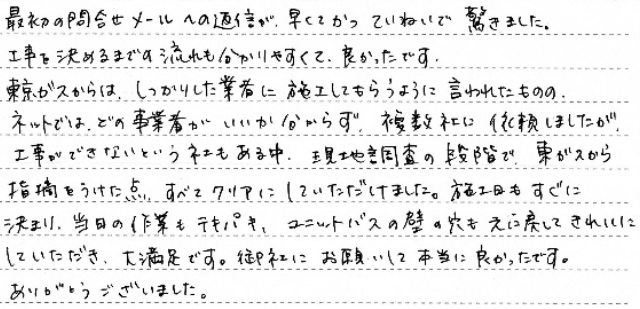 最初の問合せメールへの返信が、早くてかつていねいで驚きました。
工事を決めるまでの流れも分かりやすくて、良かったです。
東京ガスからは、しっかりした業者に施工してもらうように言われたものの、
ネットでは、どの事業者がいいか分からず、複数社に依頼しましたが、
工事ができないという社もある中、現地調査の段階で、東ガスから
指摘をうけた点、すべてクリアにしていただけました。施工日もすぐに
決まり、当日の作業もテキパキ、ユニットバスの壁の穴も元に戻してきれいに
していただき、大満足です。御社にお願いして本当に良かったです。
ありがとうございました。